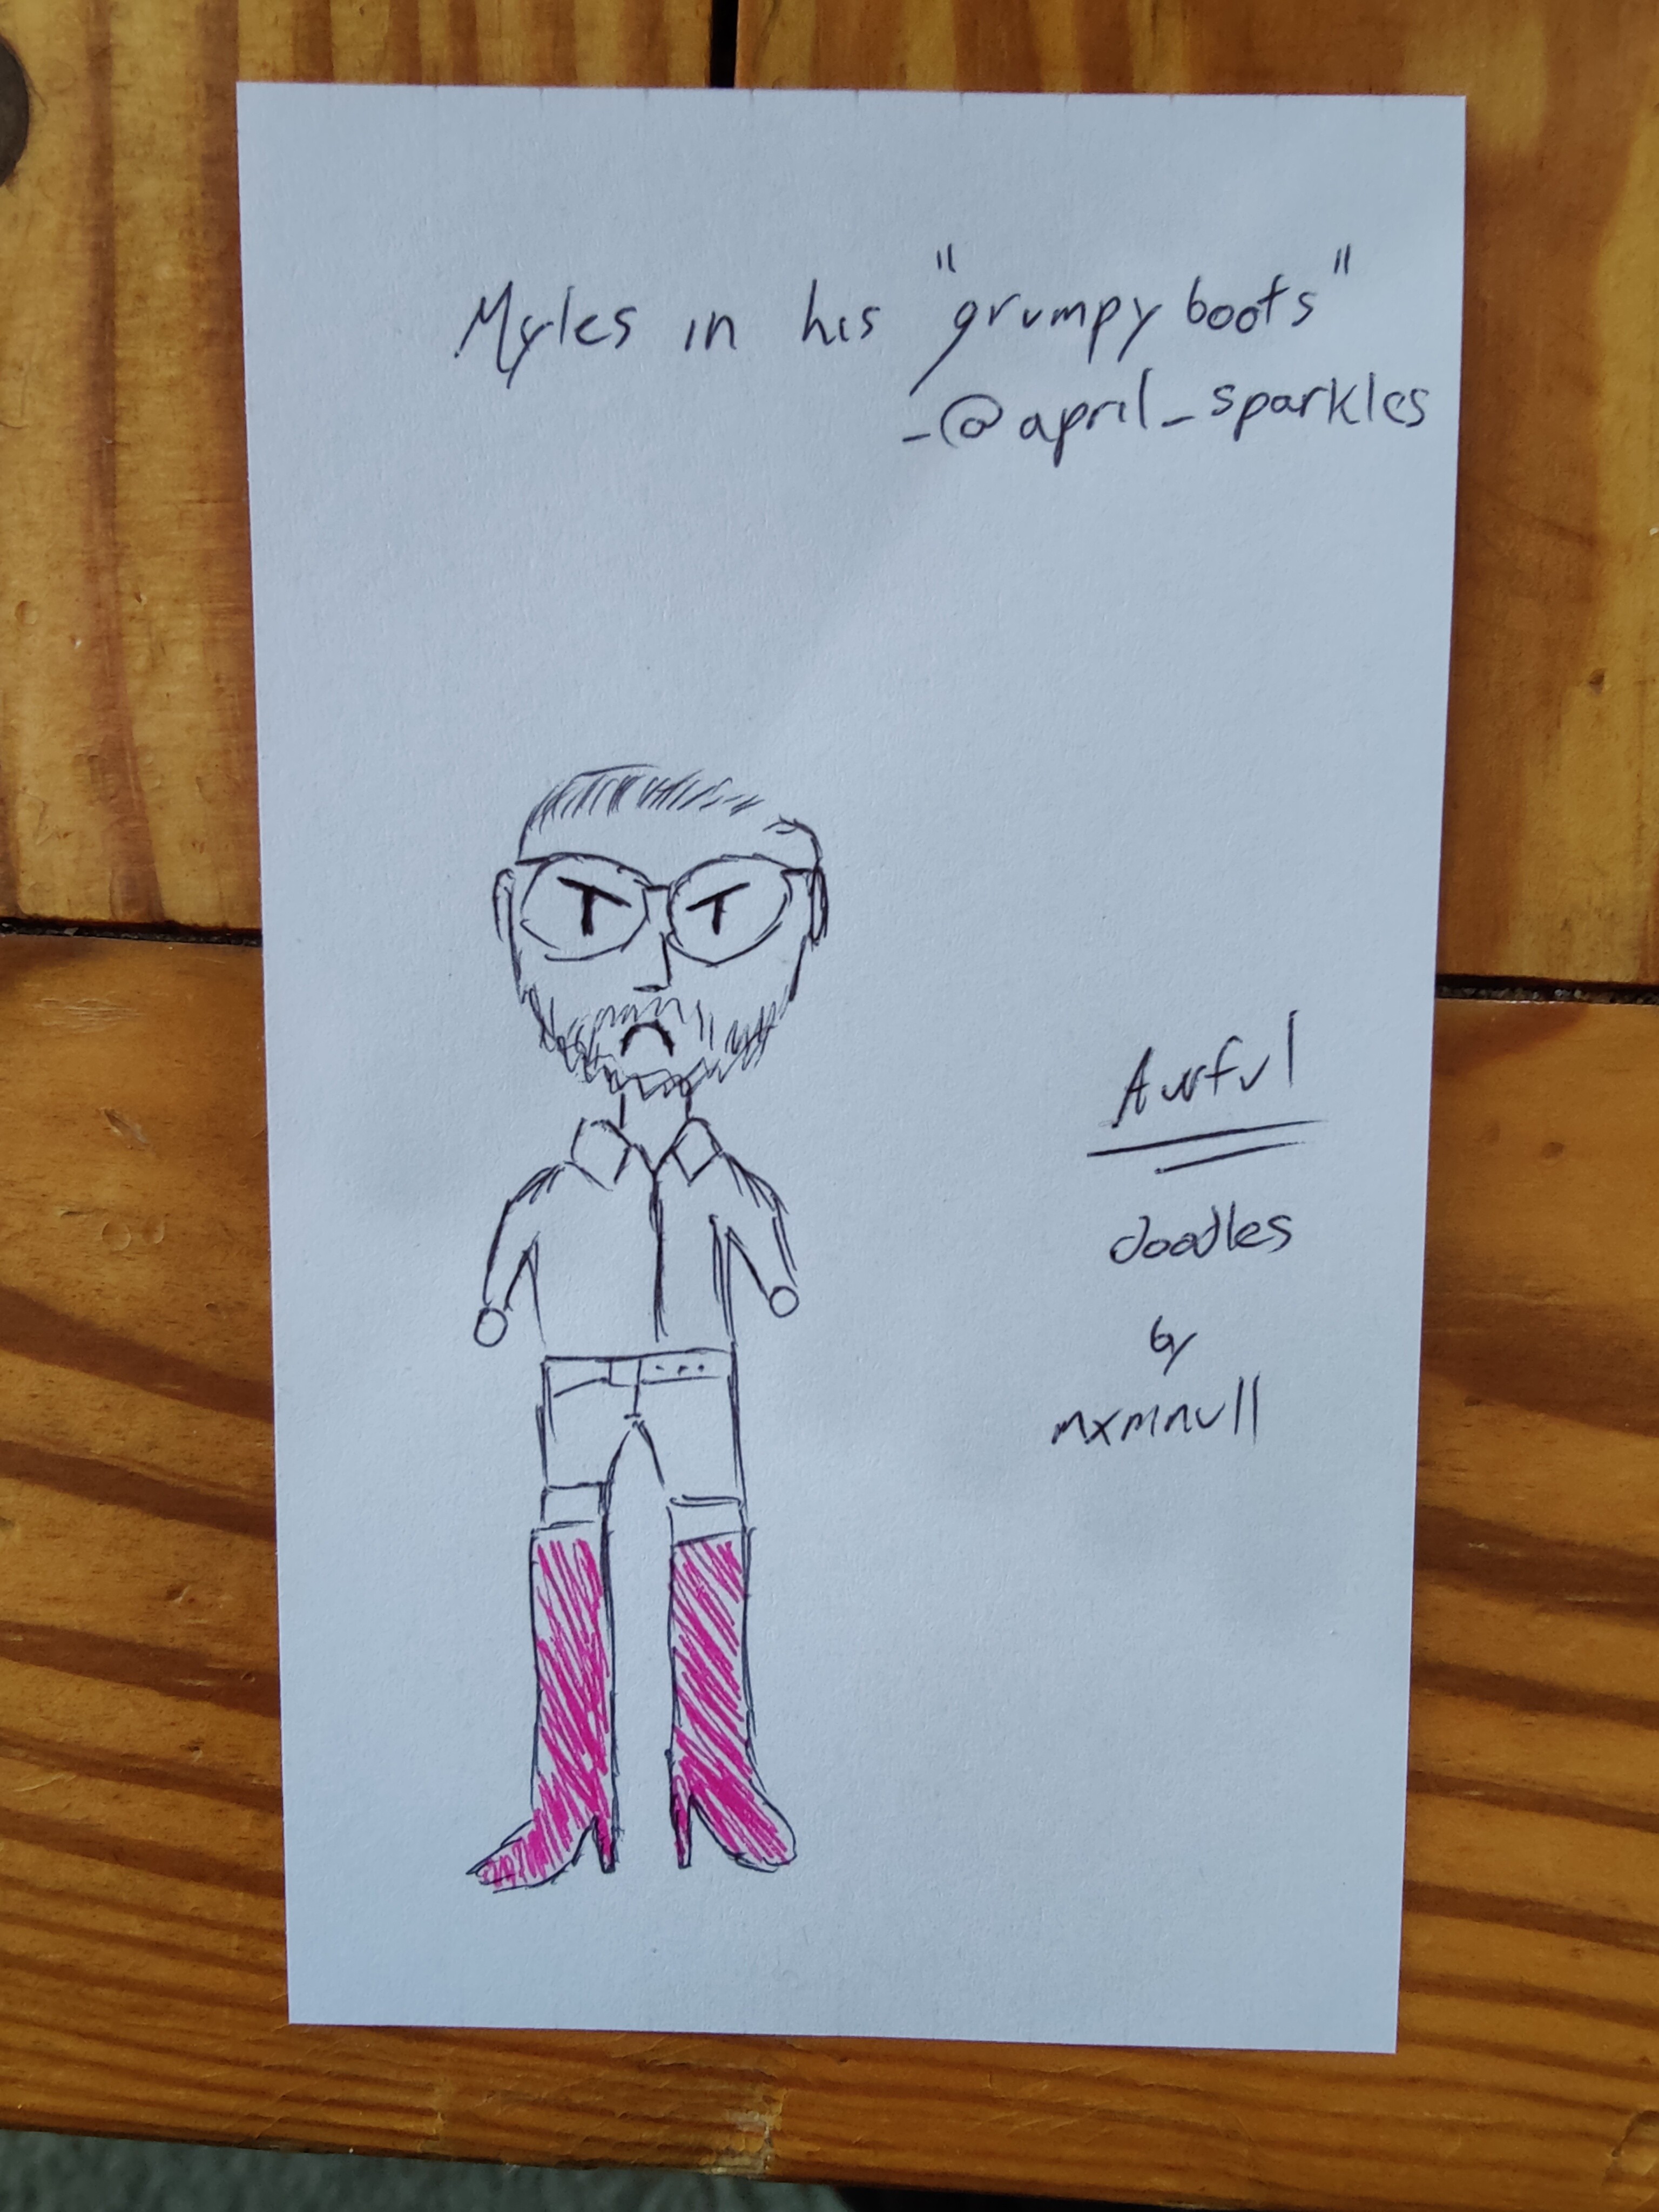 Myles in his "grumpy boots"
-@april_sparkles
Awful
doodles
by
mxmnull